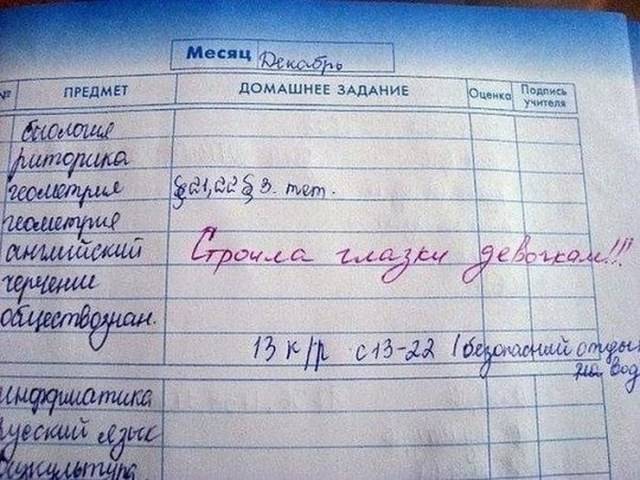 Месяц Декабрь
№ ПРЕДМЕТ ДОМАШНЕЕ ЗАДАНИЕ Оценка Подпись учителя
биология
риторика
геометрия §21,22 § 3. тет.
геометрия
английский Строила глазки девочкам!!!
черчение
обществознан.
13 к/р с 13-22 (безопасний отды
на вод
информатика
русский язык
физкультура